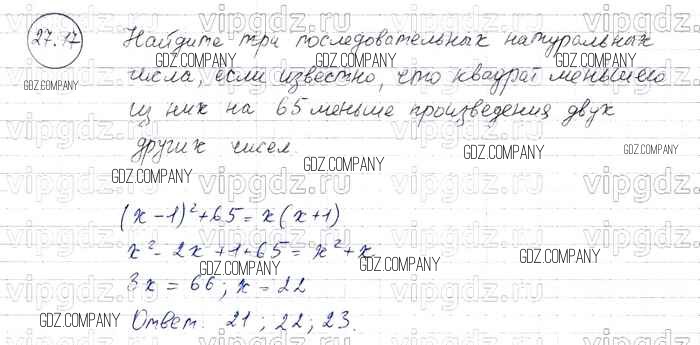 27.17
Найдите три последовательных натуральных
числа, если известно, что квадрат меньшего
из них на 65 меньше произведения двух
других чисел.
(x-1)²+65=x(x+1)
x²-2x+1+65=x²+x
3x=66; x=22
Ответ: 21; 22; 23.
vipgdz.ru
GDZ.COMPANY